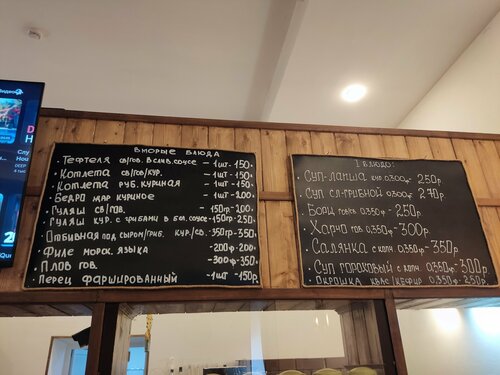 Вторые блюда
• Тефтеля св/гов. в слив. соусе – 1шт – 150р
• Котлета св/гов/кур. – 1шт – 150р
• Котлета руб. куриная – 1шт – 150р
• Бедро жар куриное – 1шт – 200р
• Гуляш св/гов. – 150гр – 200р
• Гуляш кур. с грибами в бел. соусе – 150гр – 250р
• Отбивная под сыром/гриб. кур/св. – 350гр – 350р
• Филе морск. языка – 200ф – 200р
• Плов гов. – 300ф – 350р
• Перец фаршированный – 1шт – 150р.
I блюдо:
• Суп-лапша кур. 0.300ф – 250р.
• Суп сл-грибной 0.300ф – 270р.
• Борщ говяд 0.350ф – 250р.
• Харчо гов 0.350ф – 300р.
• Салянка с копч. 0.350ф – 350р.
• Суп гороховый с копч. 0.350ф – 300р.
• Окрошка квас/кефир 0.350ф – 250р.